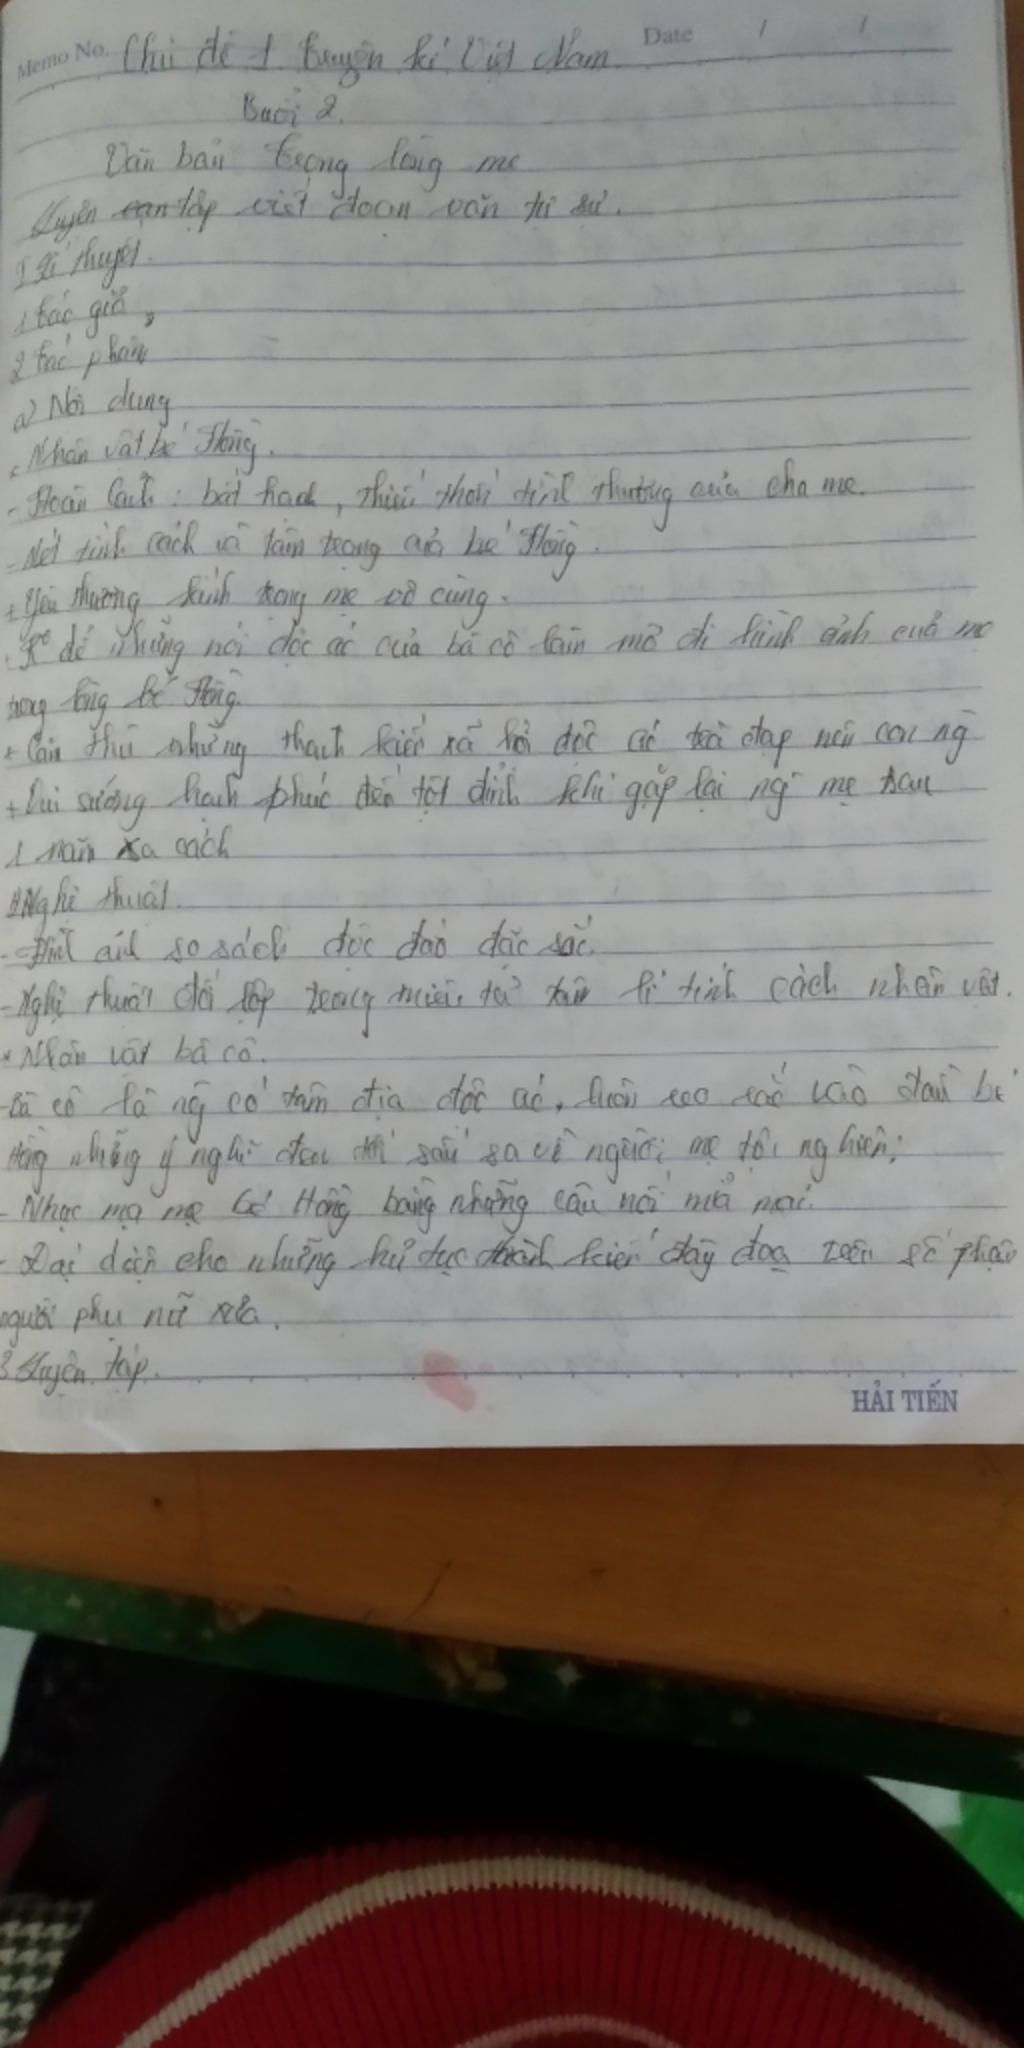 Memo No. Chủ đề 1 truyện kí Việt Nam Date / /
Buổi 2.
Văn bản trong lòng mẹ
Luyện tập viết đoạn văn tự sự.
I Lí thuyết.
1 tác giả
2 tác phẩm
a) Nội dung
Nhân vật bé Hồng.
- Hoàn cảnh: bất hạnh, thiếu thốn tình thương của cha mẹ.
- Nét tính cách và tâm trạng của bé Hồng.
+ Yêu thương kính trọng mẹ vô cùng.
để những nói độc ác của bà cô làm mờ đi hình ảnh của mẹ
trong lòng bé Hồng.
+ Căm thù những thành kiến xã hội độc ác trà đạp nên con ng
+ Vui sướng hạnh phúc đến tột đỉnh khi gặp lại ng mẹ sau
1 năm xa cách
Nghệ thuật.
- Hình ảnh so sánh độc đáo đặc sắc.
- Nghệ thuật đối lập trong miêu tả tâm lí tính cách nhân vật.
* Nhân vật bà cô.
- Bà cô là ng có tâm địa độc ác, luôn reo rắc vào đầu bé
Hồng những ý nghĩ đen tối sấu sa về người mẹ tội nghiệp;
- Nhục mạ mẹ bé Hồng bằng những câu nói mỉa mai.
- Đại diện cho những hủ tục thành kiến đầy đoạ trên số phận
người phụ nữ xưa.
3 Luyện tập.
HẢI TIẾN